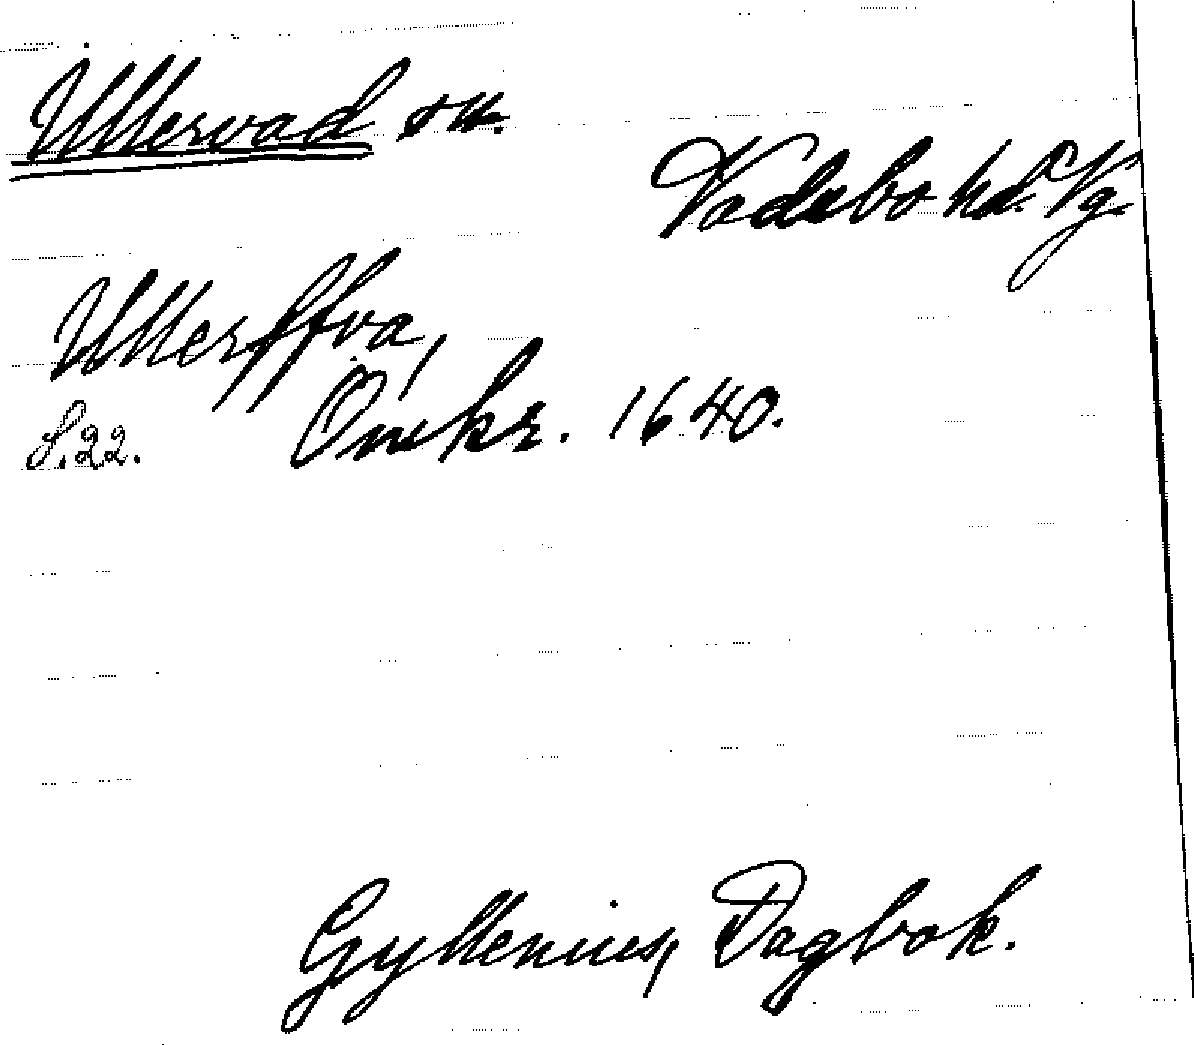 Ullervad sn.
Vadsbo hd. Vg.
Ullersffva,
S. 22. Omkr. 1640.
Gyllenius, Dagbok.